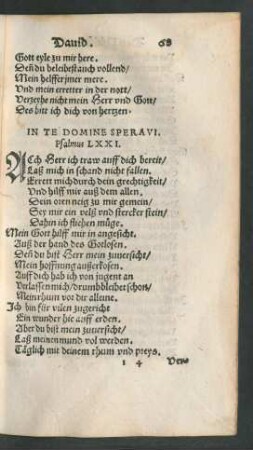 Dauid. 68
Gott eyle zu mir here.
Deñ du beleibest auch vollend/
Mein helffer jmer mere.
Vnd mein erretter in der nott/
Verzeyhe nicht mein Herr vnd Gott/
Des bitt ich dich von hertzen.
IN TE DOMINE SPERAVI.
Psalmus LXXI.
ACh Herr ich traw auff dich bereit/
Laß mich in schand nicht fallen.
Errett mich durch dein grechtigkeit/
Vnd hilff mir auß dem allen.
Dein oren neig zu mir gemein/
Sey mir ein velß vnd stercker stein/
Dahin ich fliehen müge.
Mein Gott hilff mir in angesicht.
Auß der hand des Gotlosen.
Deñ du bist Herr mein zuuersicht/
Mein hoffnung außerkosen.
Auff dich hab ich von jugent an
Verlassen mich/ drumb bleibet schon/
Mein rhum vor dir alleine.
Ich bin für vilen zugericht
Ein wunder hie auff erden.
Aber du bist mein zuuersicht/
Laß meinen mund vol werden.
Täglich mit deinem rhum vnd preys.
i 4 Ver⸗